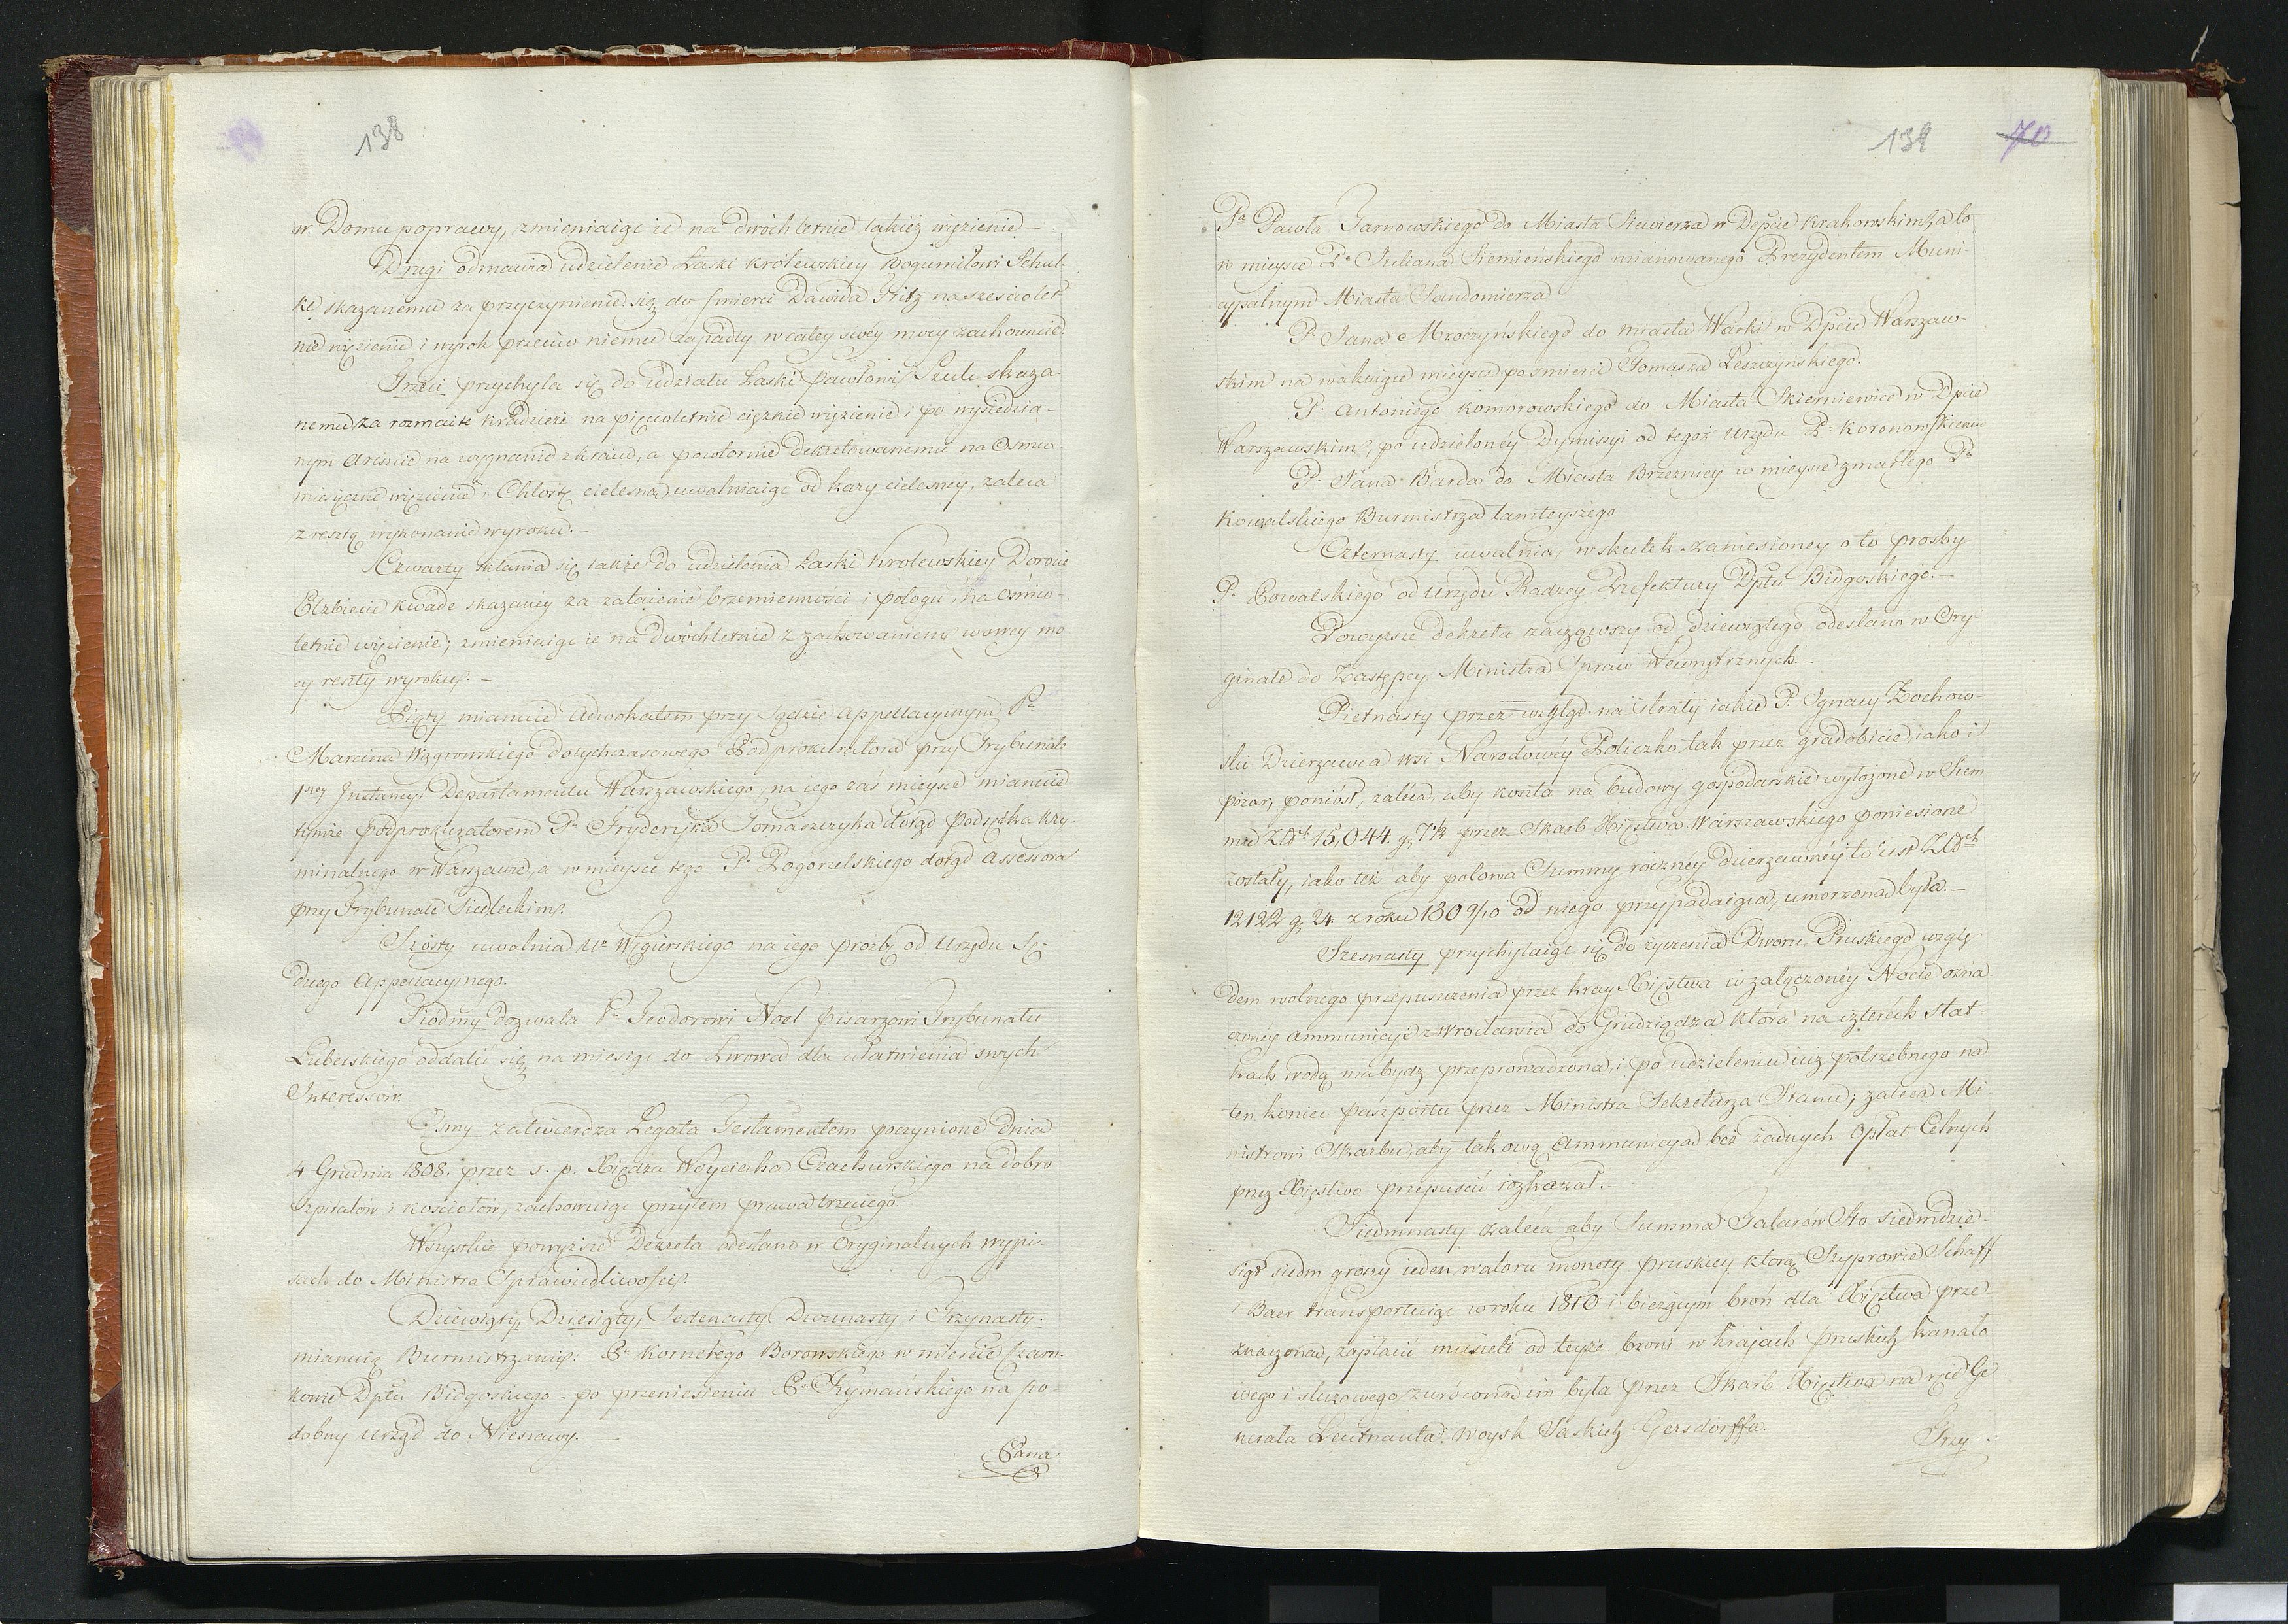 138
w Domu poprawy, zmieniaiąc ie na dwóch letnie takież więzienie –
Drugi odmawia udzielenie Łaski królewskiey Bogumiłowi Schul-
ke skazanemu za przyczynienie się do śmierci Dawida Fitz na sześciolet-
nie więzienie i wyrok przeciw niemu zapadły w całey swey mocy zachowuie.
Trzeci przychyla się do udziału Łaski Pawłowi Szulc skaza-
nemu za rozmaite kradzieże na pięcioletnie ciężkie więzienie i po wysiedzia-
nym Areszcie na wygnanie z kraiu, a powtornie dekretowanemu na Osmio
miesięczne więzienie i Chłostę cielesną, uwalniaiąc od kary cielesney, zaleca
z resztą wykonanie wyroku. –
Czwarty skłania się także do udzielenia Łaski Krolewskiey Dorocie
Elżbiecie Kwade skazaney za zataienie brzemienności i połogu, na Osmio-
letnie więzienie; zmieniaiąc ie na dwóchletnie z zachowaniem w swey mo
cy reszty wyroku. –
Piąty mianuie Adwokatem przy Sądzie Appellacyinym Pa
Marcina Wągrowskiego dotychczasowego Podprokuratora przy Trybunale
1wszey Instancyi Departamentu Warszawskiego, na iego zaś mieysce mianuie
tymże podprokuratorem Pa Fryderyka Tomaszczyka dotąd Podsędka Kry-
minalnego w Warszawie, a w mieysce tego Pa Pogorzelskiego dotąd Assessora
przy Trybunale Siedleckim.
Szósty uwalnia Ur Węgierskiego na iego prozbę od Urzędu Sę-
dziego Appellacyinego.
Siodmy dozwala Pu Teodorowi Noel pisarzowi Trybunału
Lubelskiego oddalić się na miesiąc do Lwowa dla ułatwienia swych
Interessów.
Osmy zatwierdza Legata Testamentem poczynione dnia
4 Grudnia 1808. przez ś. p. Xiędza Woyciecha Czachurskiego na dobro
szpitalów i kościołów, zachowuiąc przytem prawa trzeciego.
Wszystkie powyższe Dekreta odesłano w Oryginalnych wypi-
sach do Ministra Sprawiedliwości.
Dziewiąty, Dziesiąty, Jedenasty, Dwunasty i Trzynasty.
mianuią Burmistrzami: Pa Kornelego Borowskiego w mieście Czarn-
kowie Dptu Bidgoskiego po przeniesieniu Pa Szymańskiego na po-
dobny urząd do Nieszawy. –
Pana
139 70
Pa Pawła Tarnowskiego do Miasta Siewierza w Depcie Krakowskim, a to
w mieysce Pa Juliana Siemieńskiego mianowanego Prezydentem Muni-
cypalnym Miasta Sandomierza
Pa Jana Mroczyńskiego do miasta Warki w Dpcie Warszaw-
skim na wakuiące mieysce po śmierci Tomasza Leszczyńskiego.
Pa Antoniego Komorowskiego do Miasta Skierniewice w Dpcie
Warszawskim, po udzielonéy Dymissyi od tegoż Urzędu Pu Koronowskiemu
Pa Jana Barda do Miasta Brzeznicy w mieysce zmarłego Pa
Kowalskiego Burmistrza tamteyszego
Czternasty uwalnia, wskutek zaniesioney o to prosby
Pa Powalskiego od Urzędu Radzcy Prefektury Dptu Bidgoskiego. –
Powyższe dekreta zacząwszy od dziewiątego odesłano w Ory-
ginale do Zastępcy Ministra Spraw Wewnętrznych. –
Pietnasty przez wzgląd na straty iakie P. Ignacy Zochow-
ski Dzierżawca wsi Narodowéy Policzko tak przez gradobicie iako i
pożar, poniósł, zaleca, aby koszta na budowy gospodarskie wyłożone w Sum-
mie Złch 15,044. gr 7½ przez Skarb Xięstwa Warszawskiego poniesione
zostały, iako też aby połowa Summy roczney dzierzawnéy to iest Złch
12122 gr 24. z roku 1809/10 od niego przypadaiąca, umorzona była. –
Szesnasty przychylaiąc się do życzenia Dworu Pruskiego wzglę-
dem wolnego przepuszczenia przez kray Xięstwa w załączonéy Nocie ozna-
czonéy Ammunicyi z Wrocławia do Grudziądza która na czterech stat-
kach wodą ma bydz przeprowadzona, i po udzieleniu iuż potrzebnego na
ten koniec paszportu przez Ministra Sekretarza Stanu; zaleca Mi-
nistrowi Skarbu, aby takową Ammunicyą bez żadnych Opłat Celnych
przez Xięstwo przepuścić rozkazał. –
Siedmnasty zaleca aby Summa Talarów Sto siedmdzie-
siąt siedm groszy ieden waloru monety pruskiey którą Szyprowie Schaff
i Baer transportuiąc w roku 1810 i bieżącym broń dla Xięstwa prze-
znaczoną, zapłacić musieli od teyże broni w krajach pruskich kanało-
wego i sluzowego, zwrócona im była przez Skarb Xięstwa na ręce Ge-
nerała Leutnanta Woysk Saskich Gersdorffa.
Trzy